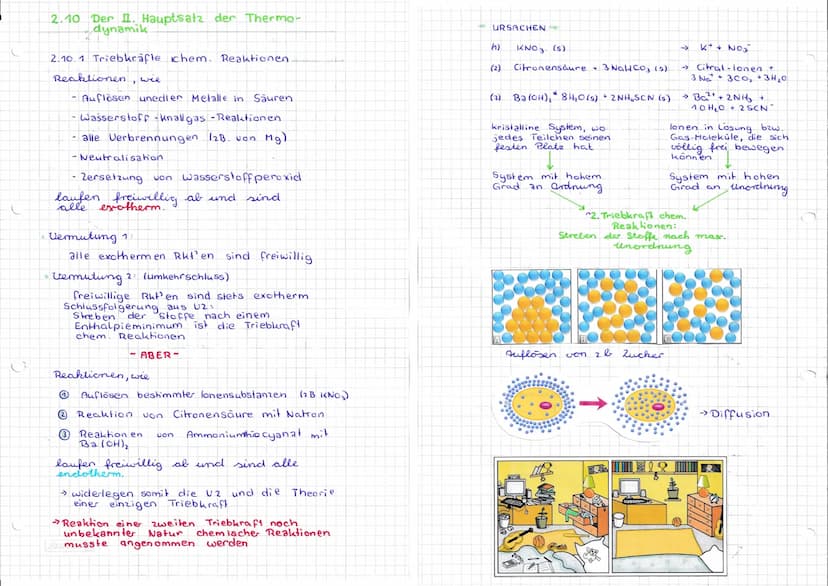 2.10 Der II. Hauptsatz der Thermo-
dynamik
2.10.1 Triebkräfte chem. Reaktionen
Reaktionen, wie
- Auflösen unedler Metalle in Säuren
- Wasserstoff-Knallgas-Reaktionen
- alle Verbrennungen (zB. von Mg)
- Neutralisation
- Zersetzung von Wasserstoffperoxid
laufen freiwillig ab und sind
alle exotherm.
• Vermutung 1:
alle exothermen Rkt'en sind freiwillig
• Vermutung 2: (Umkehrschluss)
freiwillige Rkt'en sind stets exotherm
Schlussfolgerung aus V2:
Streben der Stoffe nach einem
Enthalpieminimum ist die Triebkraft
chem. Reaktionen
- ABER -
Reaktionen, wie
① Auflösen bestimmter Ionensubstanzen (zB KNO₃)
② Reaktion von Citronensäure mit Natron
③ Reaktionen von Ammoniumthiocyanat mit
Ba(OH)₂
laufen freiwillig ab und sind alle
endotherm.
→ widerlegen somit die V2 und die Theorie
einer einzigen Triebkraft
→ Reaktion einer zweiten Triebkraft noch
unbekannter Natur chemischer Reaktionen
musste angenommen werden
- URSACHEN -
KNO₃ (s) → K⁺ + NO₃⁻
(2) Citronensäure + 3NaHCO₃ (s) → Citrat-Ionen +
3Na⁺ + 3CO₂ + 3H₂O
(3) Ba(OH)₂ * 8H₂O(s) + 2NH₄SCN(s) → Ba²⁺ + 2NH₃ +
10H₂O + 2SCN⁻
kristalline System, wo
jedes Teilchen seinen
festen Platz hat
Ionen in Lösung bzw.
Gas-Moleküle, die sich
völlig frei bewegen
können
System mit hohem
Grad an Ordnung
System mit hohen
Grad an Unordnung
~2. Triebkraft chem.
Reaktionen:
Streben der Stoffe nach max.
Unordnung
Auflösen von zB Zucker
→ Diffusion